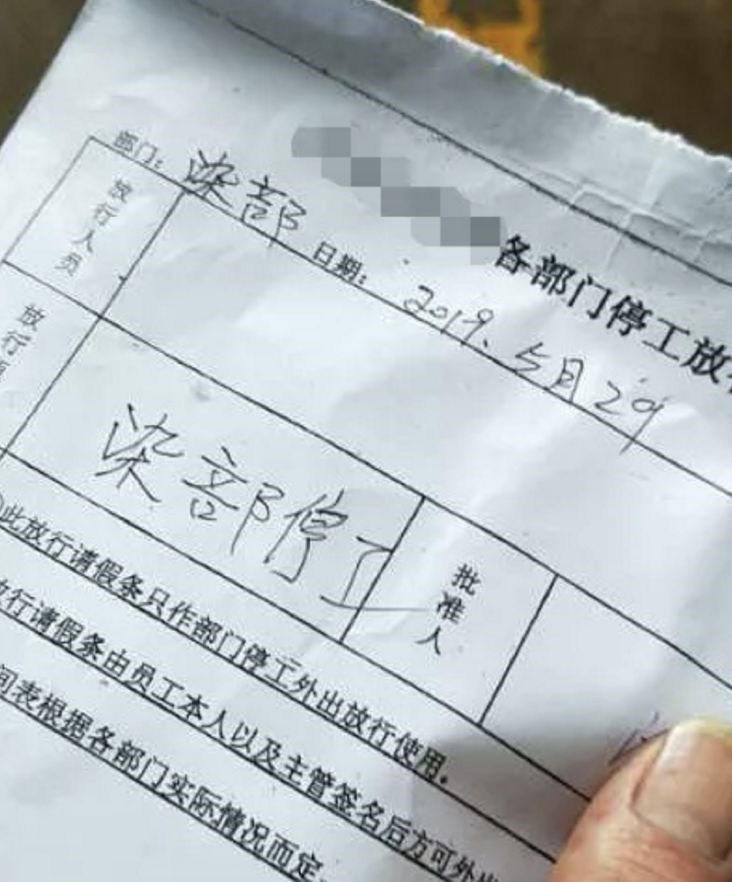 各部门停工放
部门：染部 日期：2019.5月29
放行人员
放行
染部停工 批准人
此放行请假条只作部门停工外出放行使用。
行请假条由员工本人以及主管签名后方可外出
间表根据各部门实际情况而定